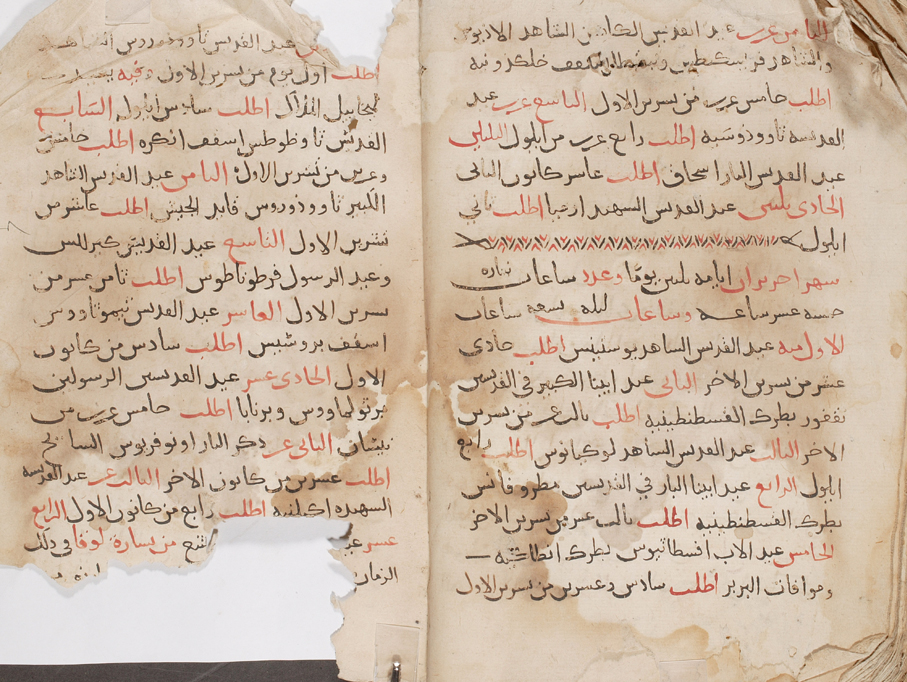 الثامن عشر عيد القديس الكاهن الشاهد
والشاهد اسقف خلكدونيه
اطلب خامس عشر من تشرين الاول التاسع عشر عيد
القديسه ثاوودوسيه اطلب رابع عشر من ايلول الثلثين
عيد القديس البار اسحاق اطلب عاشر كانون الثاني
الحادي ثلثين عيد القديس الشهيد ارميا اطلب ثاني
ايلول
شهر احزيران ايامه ثلثين يومًا وعدد ساعات نهاره
خمسة عشر ساعه وساعات ليله تسعه ساعات
الاول منه عيد القديس الشاهد يوستينس اطلب حادي
عشر من تشرين الاخر الثاني عيد ابينا الكبير في القديسين
نقفور بطرك القسطنطينيه اطلب ثالث عشر من تشرين
الاخر الثالث عيد القديس الشاهد لوكيانوس اطلب رابع
ايلول الرابع عيد ابينا البار في القديسين مطروفانس
بطرك القسطنطينيه اطلب ثالث عشرين تشرين الاخر
الخامس عيد الاب افسطاثيوس بطرك انطاكيه
وموافات البربر اطلب سادس وعشرين من تشرين الاول
عيد القديس ثاوودوروس الشاهد
اطلب اول يوم من تشرين الاول
ميخاييل الملاك اطلب سادس ايلول السابع
القديس ثاوظوطس اسقف انكره اطلب خامس
وعشرين من تشرين الاول الثامن عيد القديس الشاهد
الكبير ثاوودوروس قايد الجيش اطلب عاشر من
تشرين الاول التاسع عيد القديس كيرللس
وعيد الرسول اطلب ثامن عشر من
تشرين الاول العاشر عيد القديس تيموثاووس
اسقف بروسيس اطلب سادس من كانون
الاول الحادي عشر عيد القديسين الرسولين
برثولماووس وبرنابا اطلب خامس عشرين من
نيسان الثاني عشر ذكر البار اونوفريوس السائح
اطلب عشرين من كانون الاخر الثالث عشر عيد القديسه
الشهيده اكيلينه اطلب رابع من كانون الاول الرابع
عشر من بشارة لوقا في ذلك
الزمان